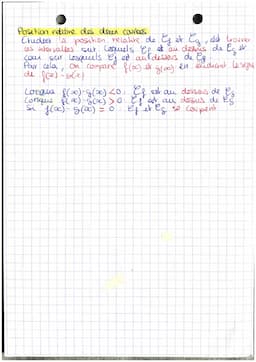 Position relative des deux courbes
Etudier la position relative de Cf et Cg, est trouver
les intervalles sur lesquels Cf est au dessus de Cg et
ceux sur lesquels Cf est au dessous de Cg
Par cela, on compare f(x) et g(x) en étudiant le signe
de f(x)-g(x)
Lorsque f(x)-g(x)<0 Cf est au dessous de Cg
Lorsque f(x)-g(x)>0 Cf est au dessus de Cg
Si f(x)-g(x)=0 Cf et Cg se coupent